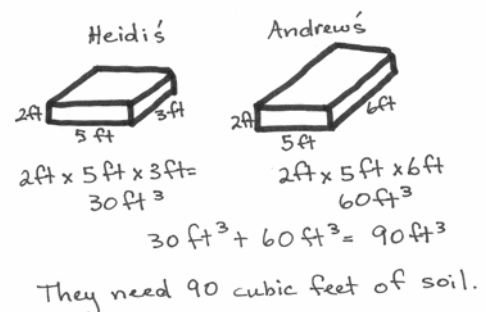 Heidi's Andrew's
2ft 5 ft 3ft 2ft 5ft 6ft
2ft x 5 ft x 3ft= 2ft x 5ft x 6ft
30 ft³ 60ft³
30 ft³ + 60 ft³ = 90ft³
They need 90 cubic feet of soil.